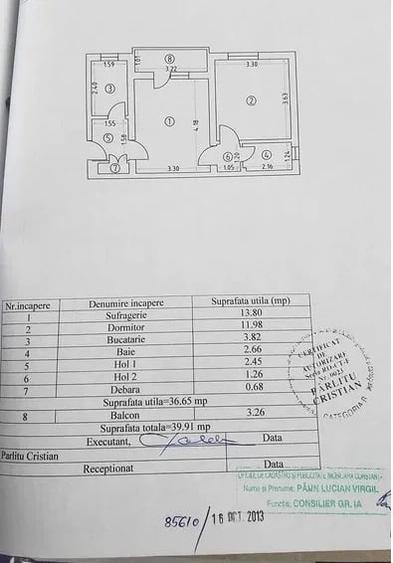 1.01
8
3.22
1.59
2.40
3
3.30
3.63
2
1.55
5
1.58
1
4.18
7
3.30
6
1.20
1.05
4
1.24
2.16
Nr.incapere Denumire incapere Suprafata utila (mp)
1 Sufragerie 13.80
2 Dormitor 11.98
3 Bucatarie 3.82
4 Baie 2.66
5 Hol 1 2.45
6 Hol 2 1.26
7 Debara 0.68
Suprafata utila=36.65 mp
8 Balcon 3.26
Suprafata totala=39.91 mp
Executant, Data
Parlitu Cristian
Receptionat Data
CERTIFICAT
DE
AUTORIZARE
PARLITU
CRISTIAN
CATEGORIA
OFICIUL DE CADASTRU SI PUBLICITATE IMOBILIARA CONSTANTA
Nume si Prenume: PĂUN LUCIAN VIRGIL
Functie: CONSILIER GR. IA
85610/16 OCT. 2013